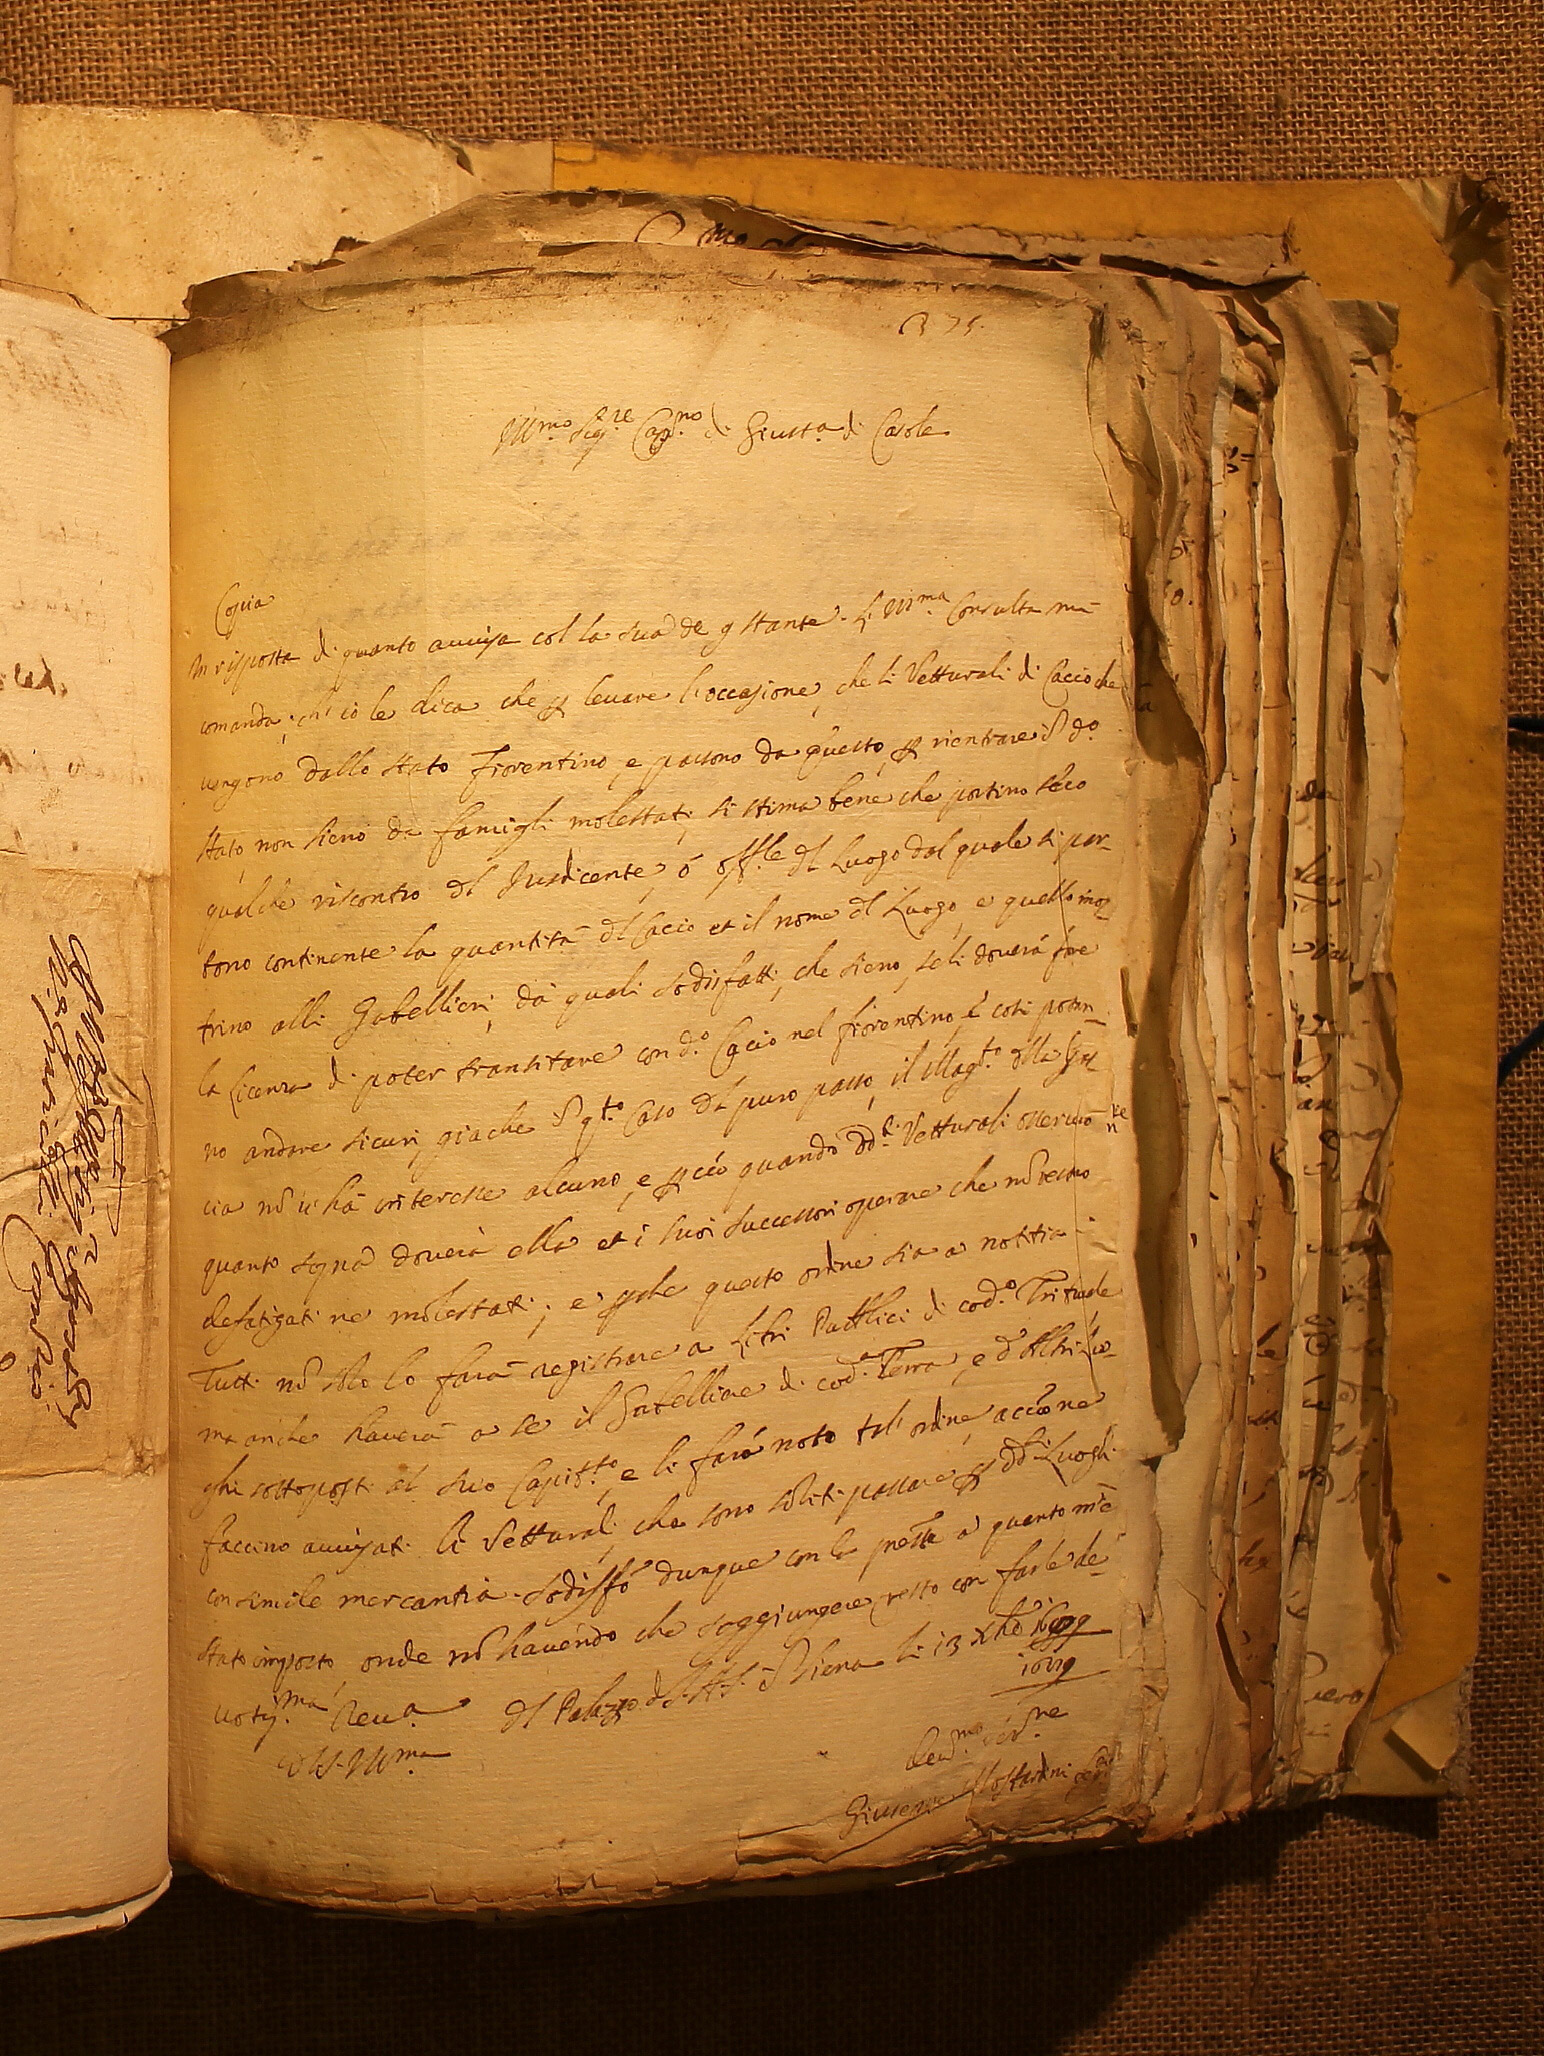 375.
Ill.mo Sig.re Cap.no di Giust.a di Casole
Copia
In risposta di quanto avvisa col la sua de 9 stante. L'Ill.ma Consulta mi
comanda, ch'io le dica che p levare l'occasione, che li Vetturali di Cacio che
vengono dallo stato Fiorentino, e passono da questo, p rientrare i d.o
stato non sieno da famigli molestati, si stima bene che portino seco
qualche riscontro del Jusdicente, ó off.le del Luogo dal quale si par-
tono continente la quantità del Cacio et il nome del Luogo, e quello mos
trino alli Gabellieri, da quali sodisfatti, che sieno, seli doverà fare
la Licenza di poter transitare con d.o Cacio nel fiorentino, è cosi potran-
no andare sicuri, giache i q.to Caso del puro passo, il Mag.to della Gras
cia nō ú hà interesse alcuno, e p ciò quando dd.i Vetturali osservino
quanto sopra doverà ella et i suoi successori operare che nō restino
defatigati ne molestati; e pche questo ordine sia a notitia di
Tutti nō solo lo farà registrare a Libri Pubblici di cod.o Tribunale
ma anche haverà a se il Gabelliere di cod.a Terra, e d'Altri Luo-
ghi sottoposti al suo Capit.to, e li farà noto tal' ordine, acciò ne
faccino avvisati li Vetturali, che sono soliti passare p dd.i Luoghi
con simile mercantia. Sodisfò dunque con la pnte a quanto m'è
stato imposto, onde nō havendo che soggiungere, resto con farle de-
votis.ma Rev.a Del Palazzo di S.A.S. i Siena li 13 Xbre
D V.S. Ill.ma
Dev.mo Ser.re
Giuseppe Mostardini